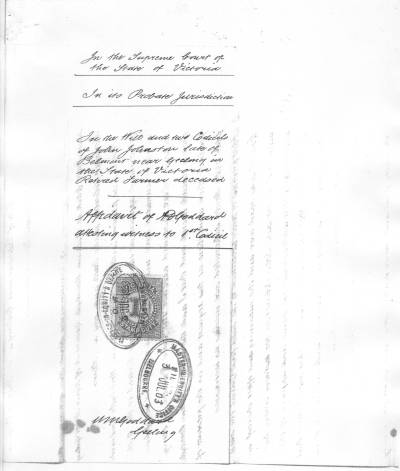 In the Supreme Court of
the State of Victoria
In its Probate Jurisdiction
In the Will and two Codicils
of John Johnston late of
Belmont near Geelong in
the State of Victoria
Retired Farmer deceased
Affidavit of Goddard
attesting witness to 1st Codicil
MASTER-IN-EQUITY'S OFFICE
JUL 03
MELBOURNE
Goddard
Geelong